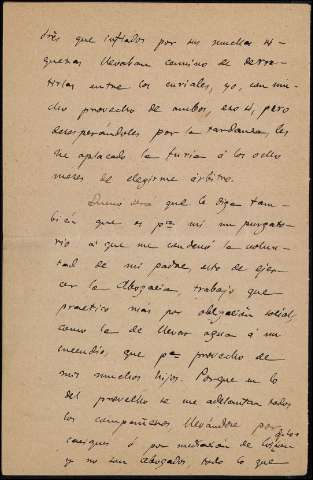 très que inflados por sus muchas ri-
quezas llevaban camino de derra-
tirlas entre los curiales, yo, con mu-
cho provecho de ambos, eso sí, pero
desesperándoles por la tardanza, les
he aplacado la furia á los ocho
meses de elegirme árbitro.
Bueno será que le diga tam-
bién que es pª mi un purgato-
rio á que me condenó la volun-
tad de mi padre, esto de ejer-
cer la Abogacía, trabajo que
practico más por obligación social,
como la de llevar agua á un
incendio, que pª provecho de
mis muchos hijos. Porque en lo
del provecho se me adelantan todos
los compañeros llevándose por
caciques ó por mediación de
y no son abogados, todo lo que